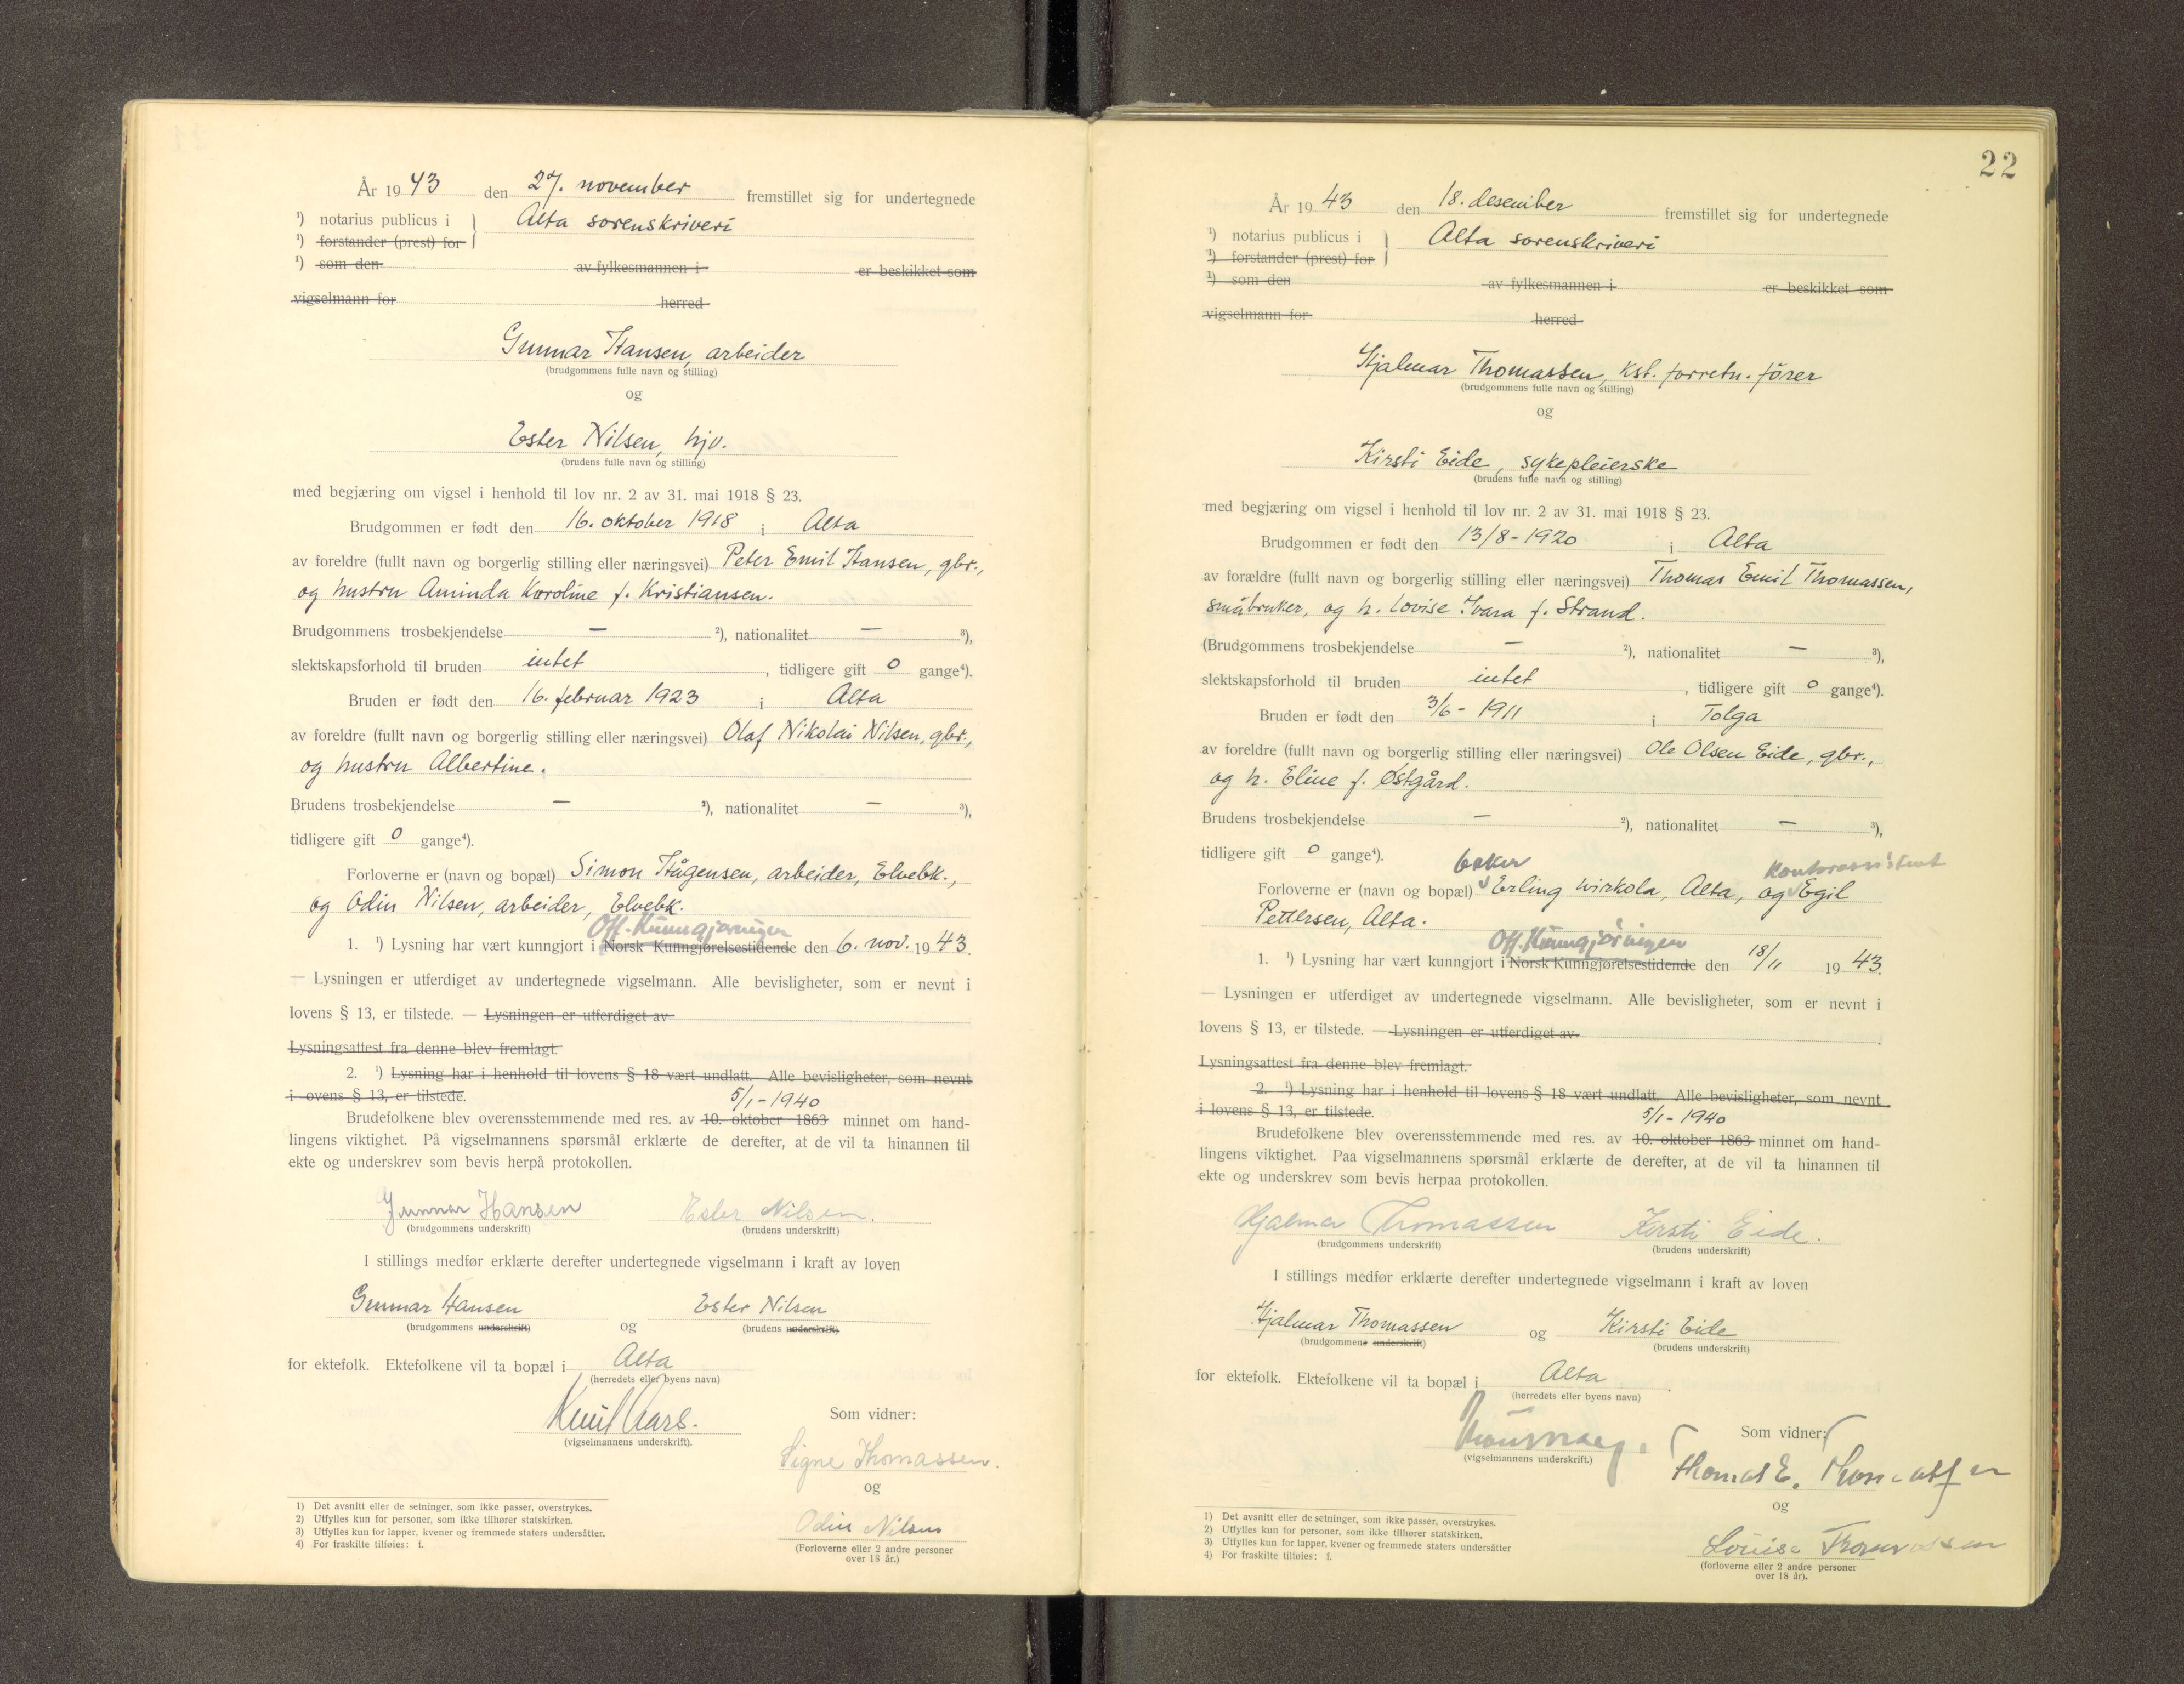 År 1943 den 27. november fremstillet sig for undertegnede
¹) notarius publicus i } Alta sorenskriveri
¹) forstander (prest) for
¹) som den av fylkesmannen i er beskikket som
vigselmann for herred
Gunnar Hansen, arbeider
(brudgommens fulle navn og stilling)
og
Ester Nilsen, hjv.
(brudens fulle navn og stilling)
med begjæring om vigsel i henhold til lov nr. 2 av 31. mai 1918 § 23.
Brudgommen er født den 16. oktober 1918 i Alta
av foreldre (fullt navn og borgerlig stilling eller næringsvei) Peter Emil Hansen, gbr.,
og hustru Aminda Karoline f. Kristiansen.
Brudgommens trosbekjendelse — ²), nationalitet — ³),
slektskapsforhold til bruden intet, tidligere gift 0 gange⁴).
Bruden er født den 16. februar 1923 i Alta
av foreldre (fullt navn og borgerlig stilling eller næringsvei) Olaf Nikolai Nilsen, gbr.,
og hustru Albertine.
Brudens trosbekjendelse — ²), nationalitet — ³),
tidligere gift 0 gange⁴).
Forloverne er (navn og bopæl) Simon Hågensen, arbeider, Elvebk.,
og Odin Nilsen, arbeider, Elvebk.
Off. Kunngjøringer
1. ¹) Lysning har vært kunngjort i Norsk Kunngjørelsestidende den 6. nov. 1943.
— Lysningen er utferdiget av undertegnede vigselmann. Alle bevisligheter, som er nevnt i
lovens § 13, er tilstede. — Lysningen er utferdiget av
Lysningsattest fra denne blev fremlagt.
2. ¹) Lysning har i henhold til lovens § 18 vært undlatt. Alle bevisligheter, som nevnt
i ovens § 13, er tilstede.
5/1-1940
Brudefolkene blev overensstemmende med res. av 10. oktober 1863 minnet om hand-
lingens viktighet. På vigselmannens spørsmål erklærte de derefter, at de vil ta hinannen til
ekte og underskrev som bevis herpå protokollen.
Gunnar Hansen Ester Nilsen.
(brudgommens underskrift) (brudens underskrift)
I stillings medfør erklærte derefter undertegnede vigselmann i kraft av loven
Gunnar Hansen og Ester Nilsen
(brudgommens underskrift) (brudens underskrift)
for ektefolk. Ektefolkene vil ta bopæl i Alta
(herredets eller byens navn)
Knut Aars.
(vigselmannens underskrift).
Som vidner:
Signe Thomassen.
og
Odin Nilsen
(Forloverne eller 2 andre personer
over 18 år.)
1) Det avsnitt eller de setninger, som ikke passer, overstrykes.
2) Utfylles kun for personer, som ikke tilhører statskirken.
3) Utfylles kun for lapper, kvener og fremmede staters undersåtter.
4) For fraskilte tilføies: f.
22
År 1943 den 18. desember fremstillet sig for undertegnede
¹) notarius publicus i } Alta sorenskriveri
¹) forstander (prest) for
¹) som den av fylkesmannen i er beskikket som
vigselmann for herred
Hjalmar Thomassen, kst. forretn. fører
(brudgommens fulle navn og stilling)
og
Kirsti Eide, sykepleierske
(brudens fulle navn og stilling)
med begjæring om vigsel i henhold til lov nr. 2 av 31. mai 1918 § 23.
Brudgommen er født den 13/8-1920 i Alta
av forældre (fullt navn og borgerlig stilling eller næringsvei) Thomas Emil Thomassen,
småbruker, og h. Lovise Ivara f. Strand.
(Brudgommens trosbekjendelse — ²), nationalitet — ³),
slektskapsforhold til bruden intet, tidligere gift 0 gange⁴).
Bruden er født den 3/6-1911 i Tolga
av foreldre (fullt navn og borgerlig stilling eller næringsvei) Ole Olsen Eide, gbr.,
og h. Eline f. Østgård.
Brudens trosbekjendelse — ²), nationalitet — ³),
tidligere gift 0 gange⁴).
baker kontorassistent
Forloverne er (navn og bopæl) Erling Wirkola, Alta, og Egil
Pettersen, Alta.
Off. Kunngjøringer
1. ¹) Lysning har vært kunngjort i Norsk Kunngjørelsestidende den 18/11 1943.
— Lysningen er utferdiget av undertegnede vigselmann. Alle bevisligheter, som er nevnt i
lovens § 13, er tilstede. — Lysningen er utferdiget av
Lysningsattest fra denne blev fremlagt.
2. ¹) Lysning har i henhold til lovens § 18 vært undlatt. Alle bevisligheter, som nevnt
i lovens § 13, er tilstede.
5/1-1940
Brudefolkene blev overensstemmende med res. av 10. oktober 1863 minnet om hand-
lingens viktighet. Paa vigselmannens spørsmål erklærte de derefter, at de vil ta hinannen til
ekte og underskrev som bevis herpaa protokollen.
Hjalmar Thomassen Kirsti Eide.
(brudgommens underskrift) (brudens underskrift)
I stillings medfør erklærte derefter undertegnede vigselmann i kraft av loven
Hjalmar Thomassen og Kirsti Eide
(brudgommens underskrift) (brudens underskrift)
for ektefolk. Ektefolkene vil ta bopæl i Alta.
(herredets eller byens navn)
(vigselmannens underskrift.)
Som vidner:
Thomas E. Thomassen
og
Louise Thomassen
(forloverne eller 2 andre personer
over 18 år).
1) Det avsnitt eller de setninger, som ikke passer, overstrykes.
2) Utfylles kun for personer, som ikke tilhører statskirken.
3) Utfylles kun for lapper, kvener og fremmede staters undersåtter
4) For fraskilte tilføies: f.